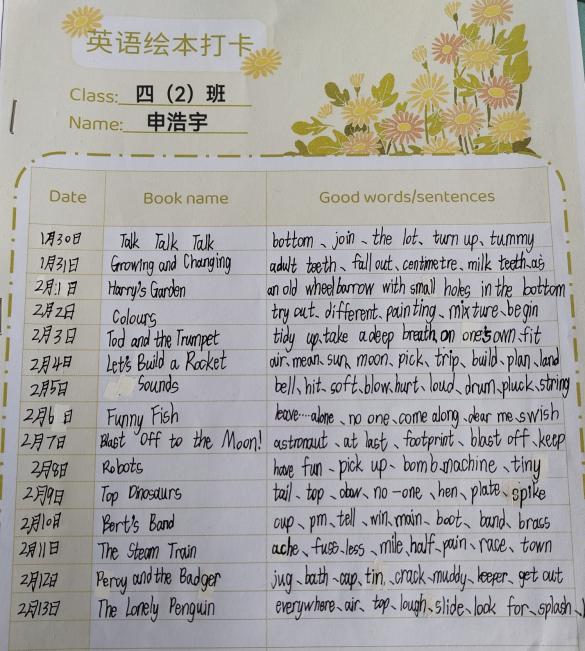 英语绘本打卡
Class: 四（2）班
Name: 申浩宇
Date Book name Good words/sentences
1月30日 Talk Talk Talk bottom、join、the lot、turn up、tummy
1月31日 Growing and Changing adult teeth、fall out、centimetre、milk teeth、as
2月1日 Harry's Garden an old wheelbarrow with small holes in the bottom
2月2日 Colours try out、different、painting、mixture、begin
2月3日 Tod and the Trumpet tidy up、take a deep breath、on one's own、fit
2月4日 Let's Build a Rocket air、mean、sun、moon、pick、trip、build、plan、land
2月5日 Sounds bell、hit、soft、blow、hurt、loud、drum、pluck、string
2月6日 Funny Fish leave……alone、no one、come along、dear me、swish
2月7日 Blast Off to the Moon! astronaut、at last、footprint、blast off、keep
2月8日 Robots have fun、pick up、bomb、machine、tiny
2月9日 Top Dinosaurs tail、top、no-one、hen、plate、spike
2月10日 Bert's Band cup、pm、tell、win、main、boot、band、brass
2月11日 The Steam Train ache、fuss、less、mile、half、pain、race、town
2月12日 Percy and the Badger jug、bath、cap、tin、crack、muddy、keeper、get out
2月13日 The Lonely Penguin everywhere、air、top、lough、slide、look for、splash、